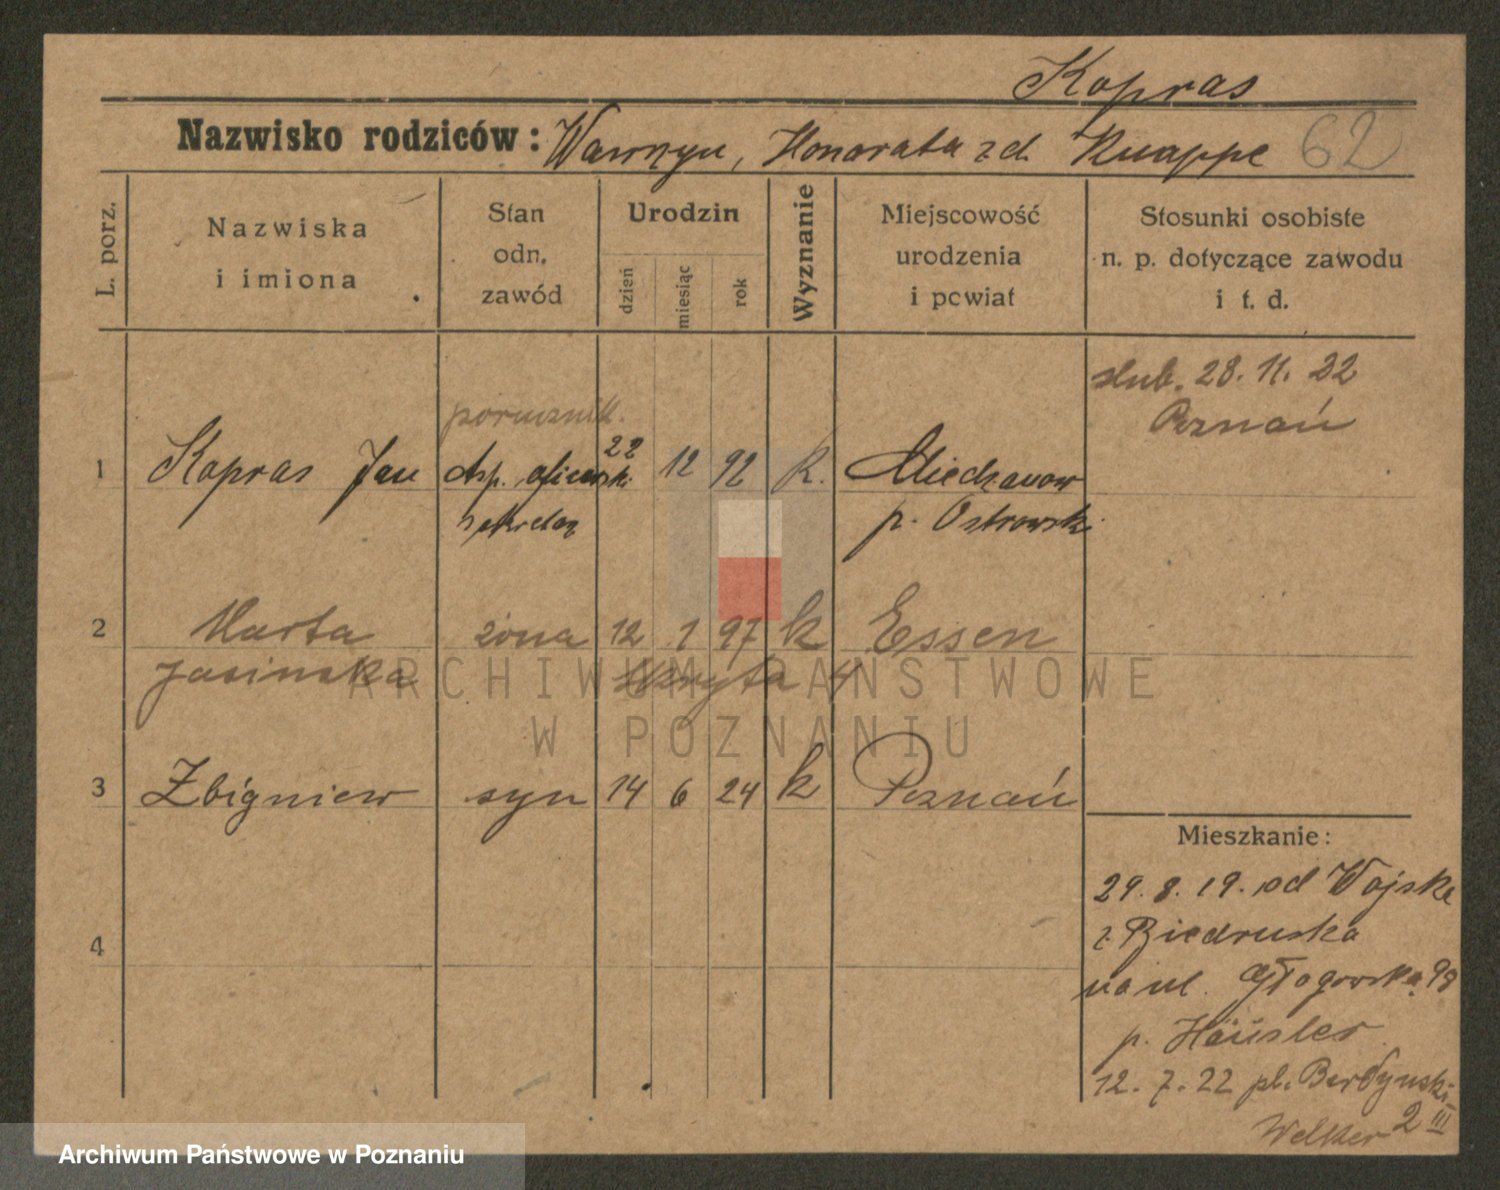 Kopras
Nazwisko rodziców: Wawrzyn, Honorata zd. Knappe 62
L. porz.
Nazwiska
i imiona
Stan
odn.
zawód
Urodzin
dzień
miesiąc
rok
Wyznanie
Miejscowość
urodzenia
i powiat
Stosunki osobiste
n. p. dotyczące zawodu
i t. d.
ślub. 28. 11. 22
Poznań
porucznik.
1 Kopras Jan Asp. oficerski 22 12 92 k.
sekretarz
p. Ostrowski
2 Marta żona 12 1 97 k Essen
Jasinska
4
ARCHIWUM PAŃSTWOWE
W POZNANIU
3 Zbigniew syn 14 6 24 k Poznań
4
Mieszkanie:
29. 8. 19. od Wojska
z Biedruska
na ul. Głogowska 98
p. Häusler
12. 7. 22 pl.
Welker 2 III
Archiwum Państwowe w Poznaniu